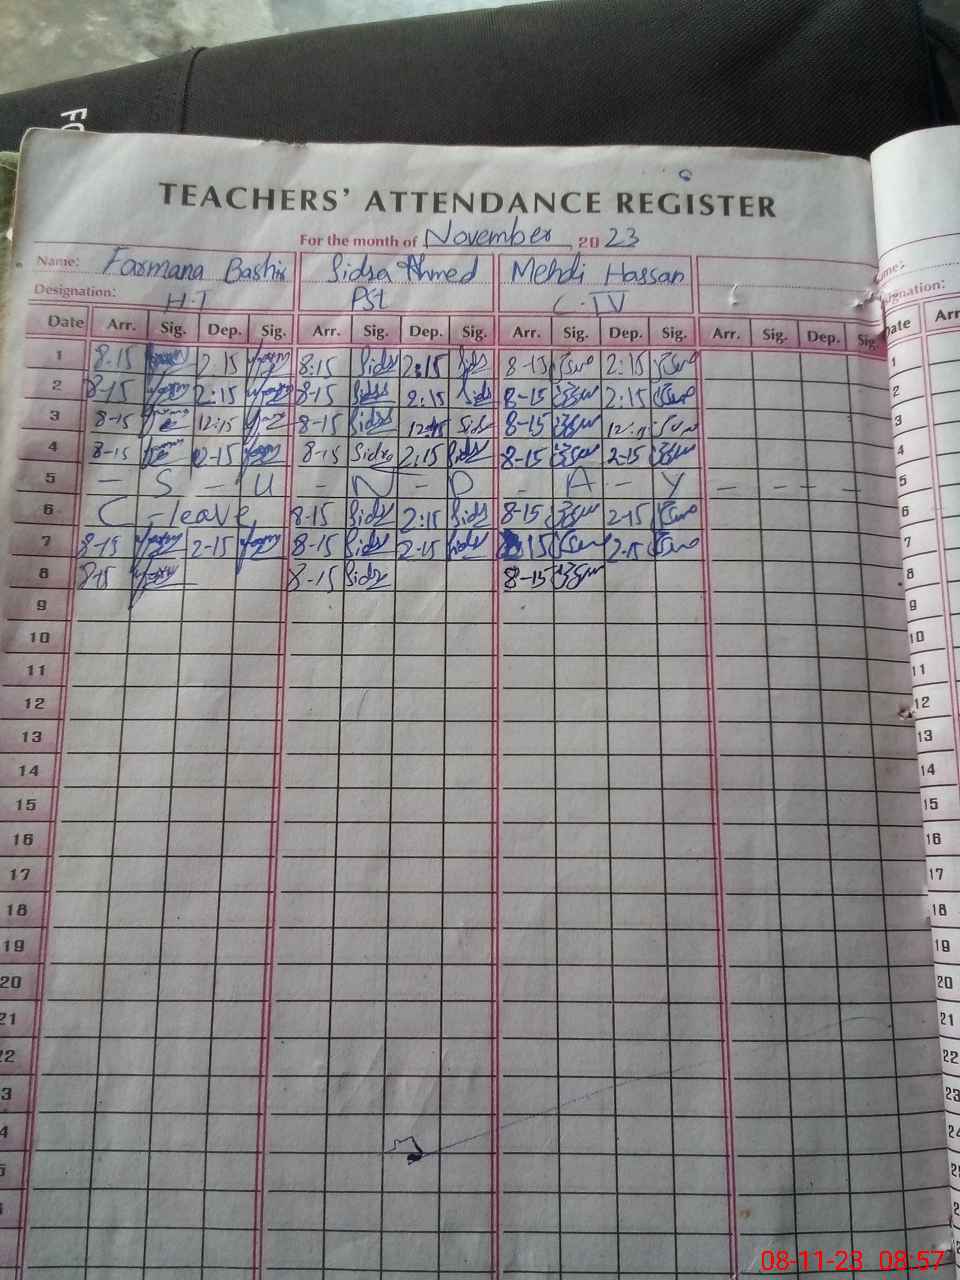 FO
TEACHERS' ATTENDANCE REGISTER
For the month of November 2023
Name: Farmana Bashir Sidra Ahmed Mehdi Hassan
Designation: H.T PSt C.IV
Date Arr. Sig. Dep. Sig. Arr. Sig. Dep. Sig. Arr. Sig. Dep. Sig. Arr. Sig. Dep. Sig. Date Arr
1 8.15 2.15 8:15 Sidr 2:15 Sidr 8-15 2:15 1
2 8-15 2:15 8-15 Sidra 2:15 Sidr 8-15 2:15 2
3 8-15 12:15 8-15 Sidra 12:15 Sidr 8-15 3
4 8-15 12-15 8-15 Sidra 2:15 Sidr 8-15 2-15 4
5 - S - U - N - D - A - Y - - - - 5
6 C-leave 8-15 Sidr 2:15 Sidr 8-15 2-15 6
7 8-15 2-15 8-15 Sidr 2-15 Sidr 8-15 2-15 7
8 8-15 8-15 Sidr 8-15 8
9 9
10 10
11 11
12 12
13 13
14 14
15 15
16 16
17 17
18 18
19 19
20 20
21 21
22 22
3 23
4 24
08-11-23 08:57